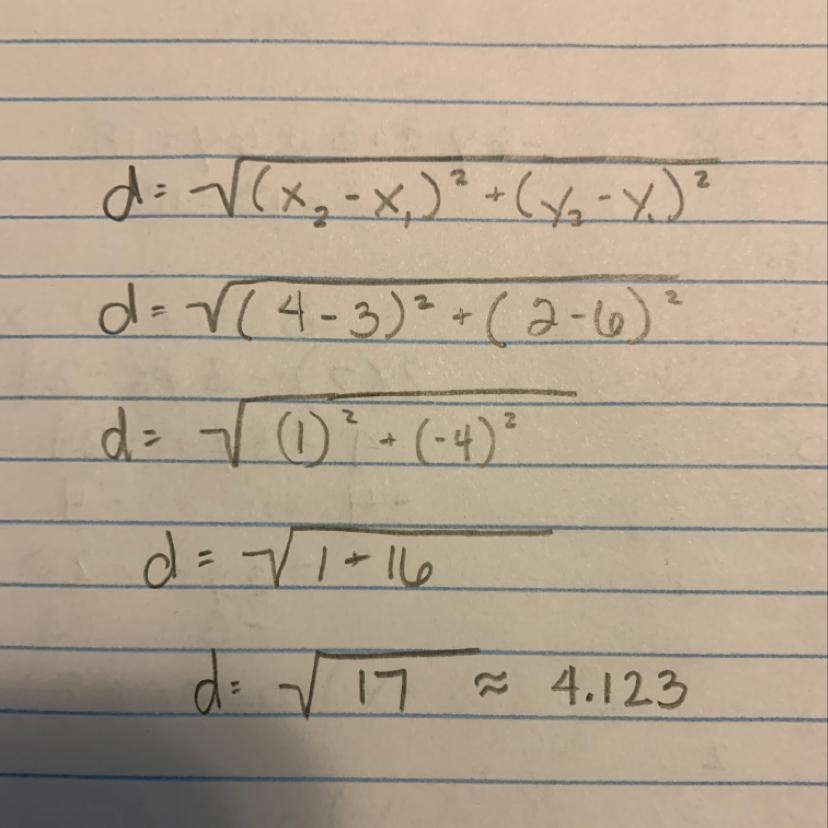 d = √(x₂ - x₁)² + (y₂ - y₁)²
d = √(4 - 3)² + (2 - 6)²
d = √(1)² + (-4)²
d = √1 + 16
d = √17 ≈ 4.123